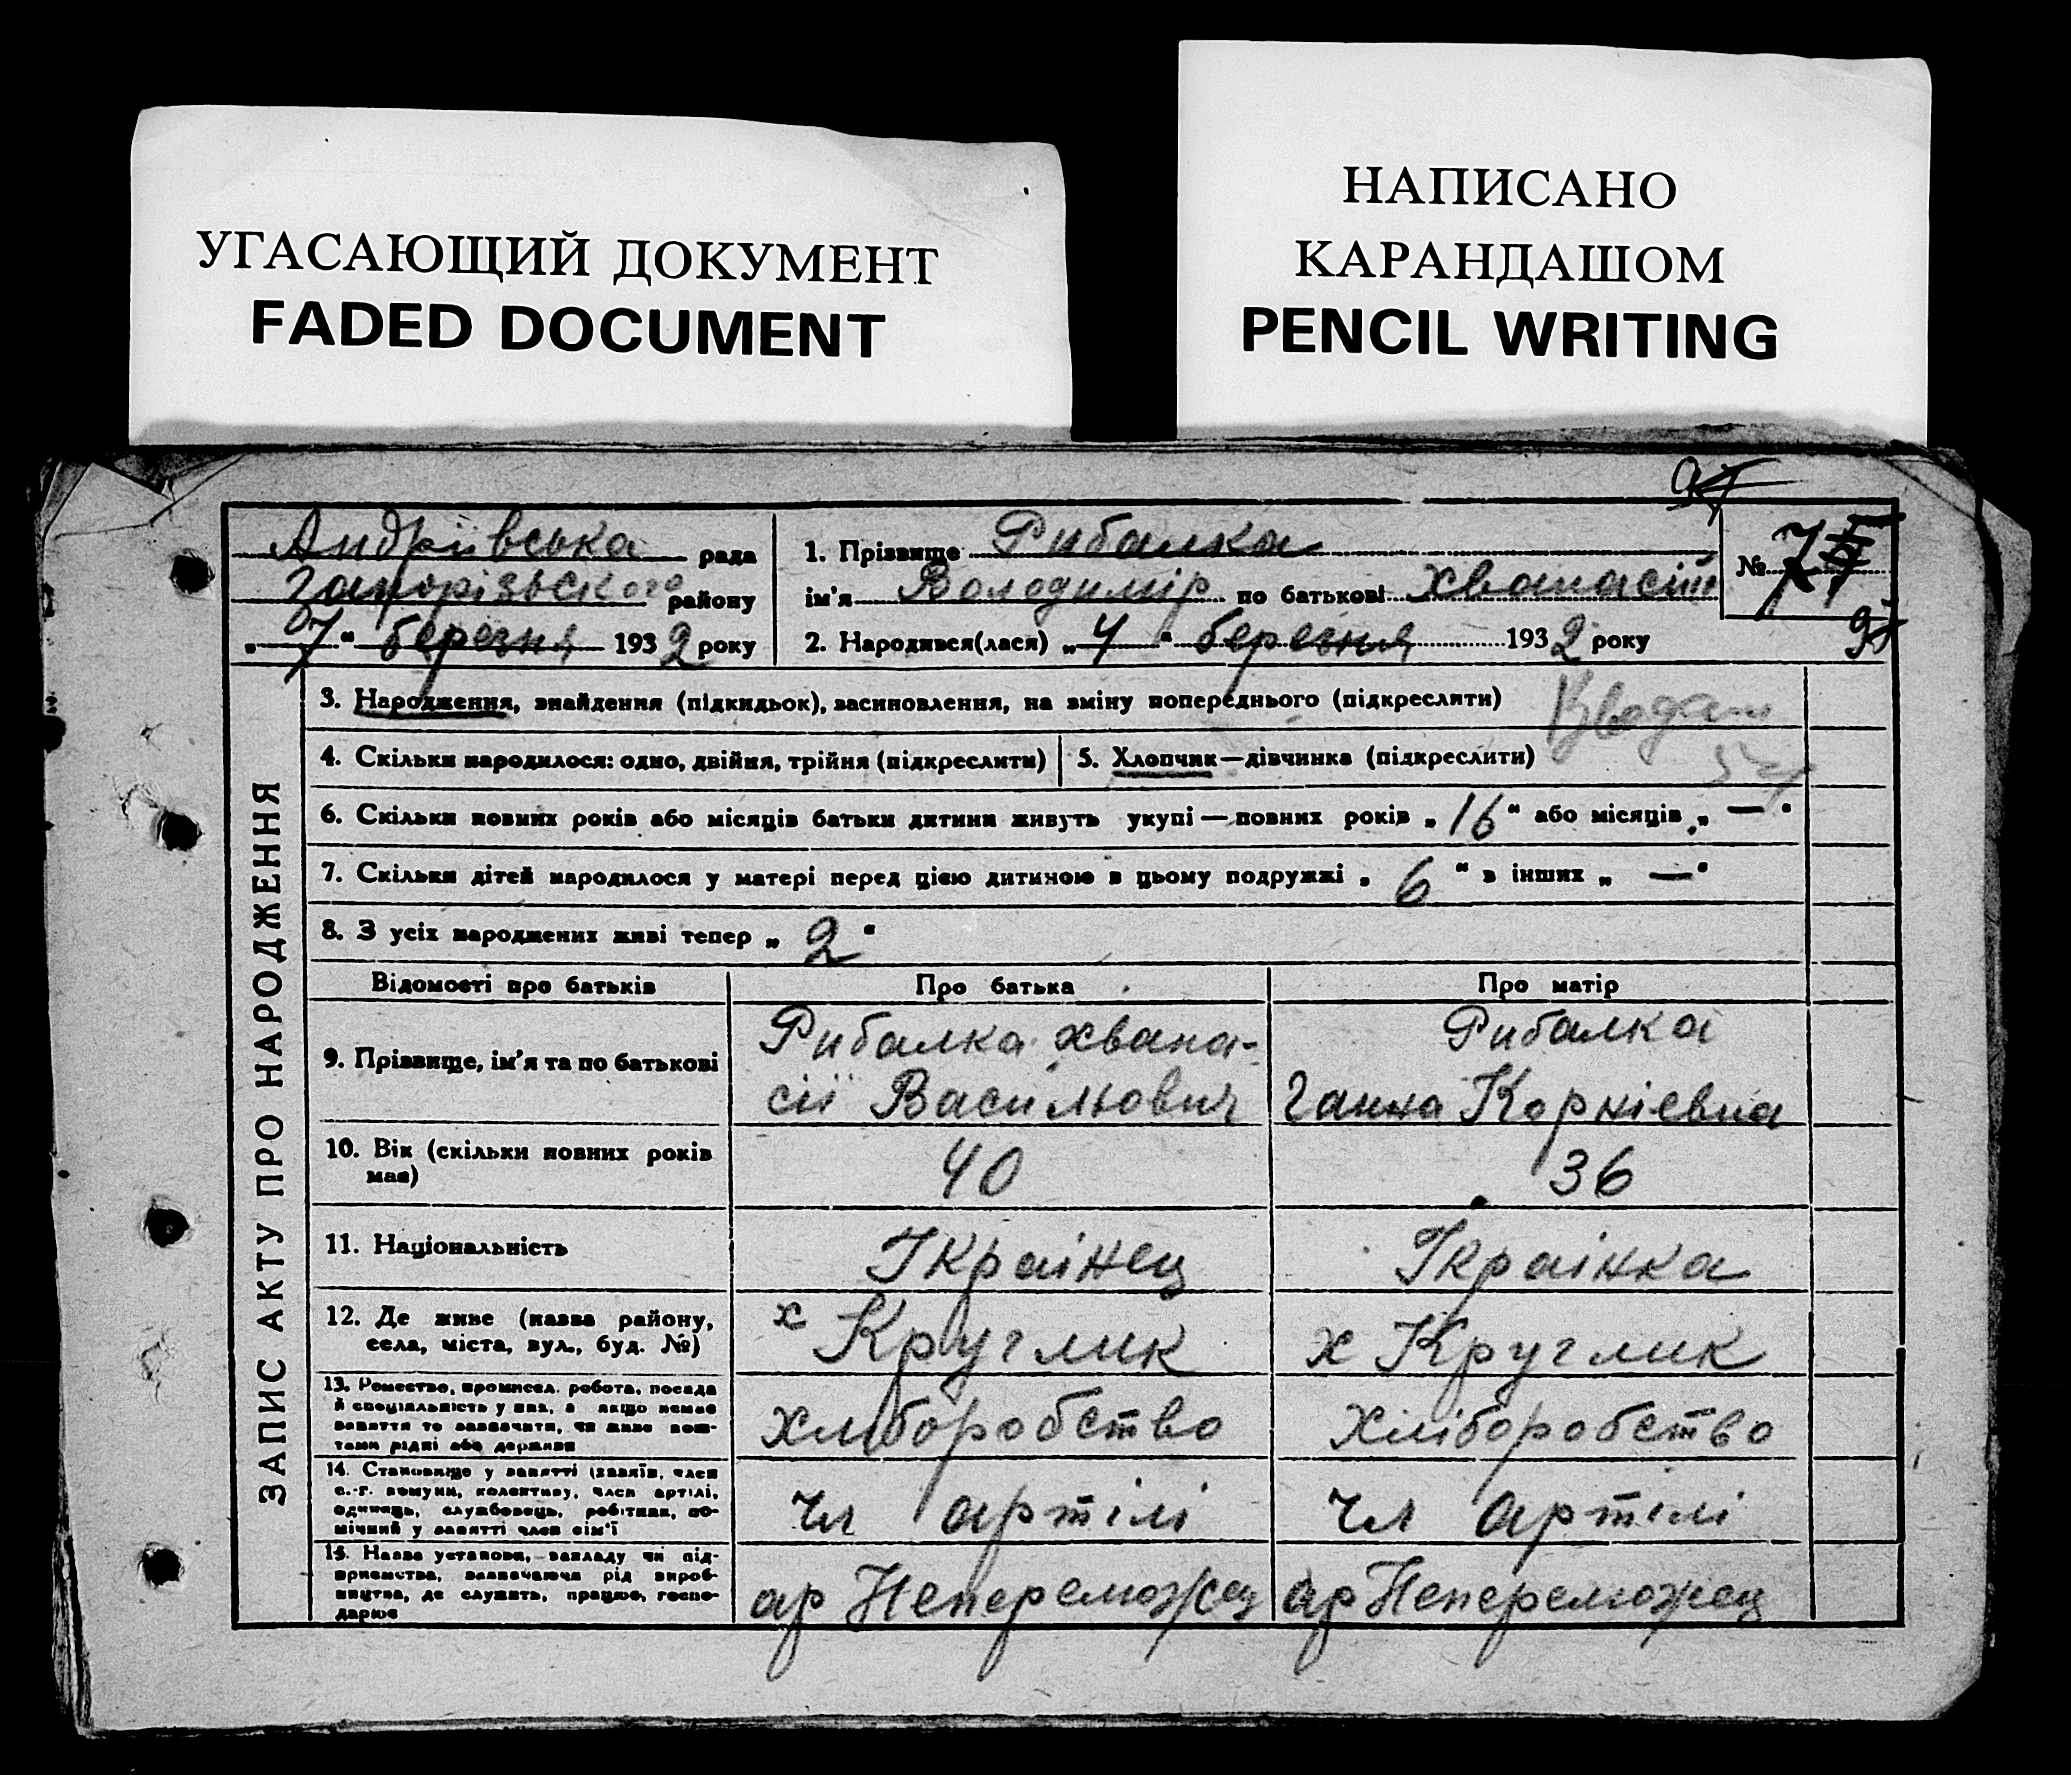 УГАСАЮЩИЙ ДОКУМЕНТ
FADED DOCUMENT
НАПИСАНО
КАРАНДАШОМ
PENCIL WRITING
Андріївська рада
Запорізського району
„7“ березня 1932 року
1. Прізвище Рибалка
ім'я Володимір по батькові Хванасій
№ 75
2. Народився(лася) „4“ березня 1932 року
ЗАПИС АКТУ ПРО НАРОДЖЕННЯ
3. Народження, знайдення (підкидьок), засиновлення, на зміну попереднього (підкреслити)
4. Скільки народилося: одно, двійня, трійня (підкреслити)
5. Хлопчик—дівчинка (підкреслити)
6. Скільки повних років або місяців батьки дитини живуть укупі — повних років „16“ або місяців „—“
7. Скільки дітей народилося у матері перед цією дитиною в цьому подружжі „6“ в інших „—“
8. З усіх народжених живі тепер „2“
Відомості про батьків Про батька Про матір
9. Прізвище, ім'я та по батькові
Рибалка Хвана-
сії Васильович
Рибалка
Ганна Корніевна
10. Вік (скільки повних років
має)
40
36
11. Національність
Україінец
Украінка
12. Де живе (назва району,
села, міста, вул., буд. №)
х Круглик
х Круглик
13. Ремество, промисел, робота, посада
й спеціяльність у них, а якщо немає
заняття то зазначити, чи живе кош-
тами рідні або держави
Хліборобство
Хліборобство
14. Становище у занятті (хазяїн, член
с.-г. комуни, колективу, член артілі,
одинець, службовець, робітник, по-
мічний у занятті член сім'ї
чл артілі
чл артілі
15. Назва установи, закладу чи під-
приємства, зазначаючи рід вироб-
ництва, де служить, працює, госпо-
дарює
ар Непереможец
ар Непереможец